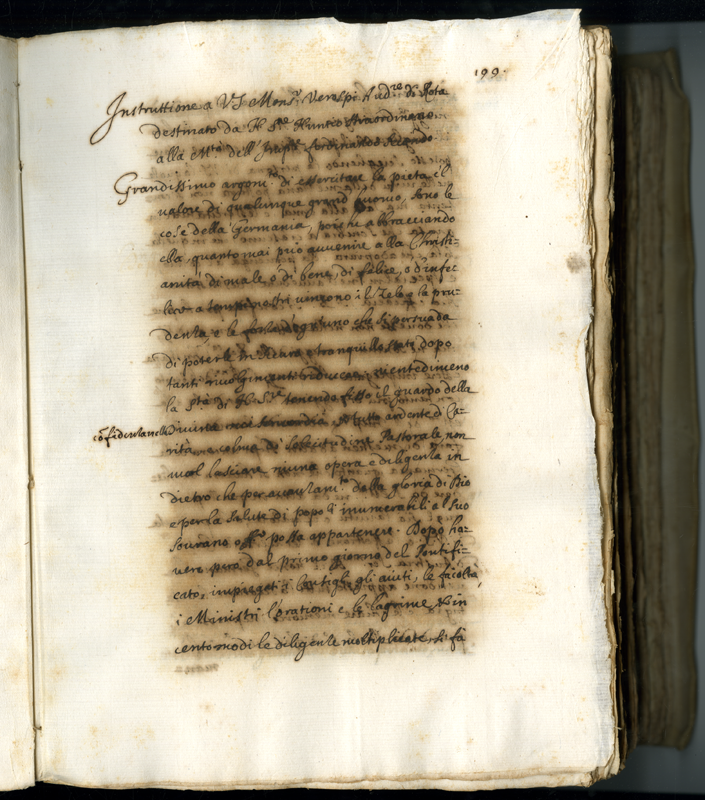 199.
Instruttione a VS Mons.r Verospi Aud.re di Rota
destinato da N. S.re Nuntio straordinario
alla M.tà dell' Imp.re Ferdinando Secondo
Grandissimo argom.to di essercitare la pietà e 'l
valore di qualunque grand' huomo, sono le
cose della Germania, poiche abbracciando
ella, quanto mai può avvenire alla Christi=
anità di male, ò di bene, di felice, ò d'infe=
lice a tempi nostri vengono il Zelo e la pru=
denza, e le forze d'ogn'uno che si persuada
di poterle in sicuro e tranquillo stato dopo
tanti rivolgimenti riducere; nientedimeno
la S.tà di N. S.re tenendo fisso il guardo della
confidenza nella Divina misericordia, et tutto ardente di Ca=
rità, e colma di sollecitudine Pastorale non
vuol lasciare niuna opera e diligenza in
dietro che per avanzam.to della gloria di Dio
e per la salute di popoli innumerabili al suo
sovrano off.o possa appartenere. Dopo ha=
vere però dal primo giorno del Pontifi=
cato, impiegati i consigli gli aiuti, le facoltà
i Ministri l'orationi e le lagrime, et in
cento modi le diligenze moltiplicate, si fà